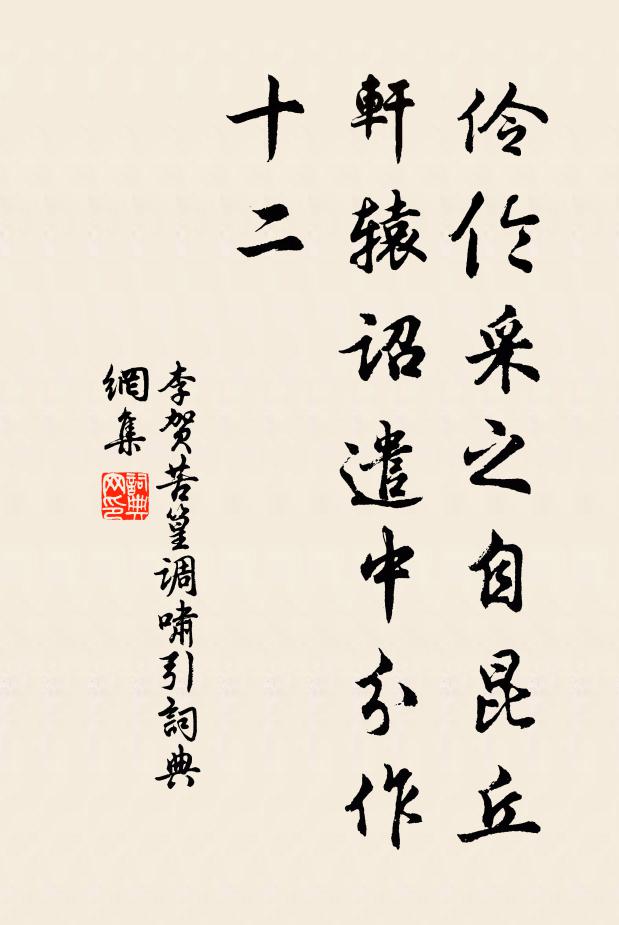 伶伦采之自昆丘
軒辕詔遣中分作
十二
李贺苦篁调啸引詞典
網集
詞典
网印